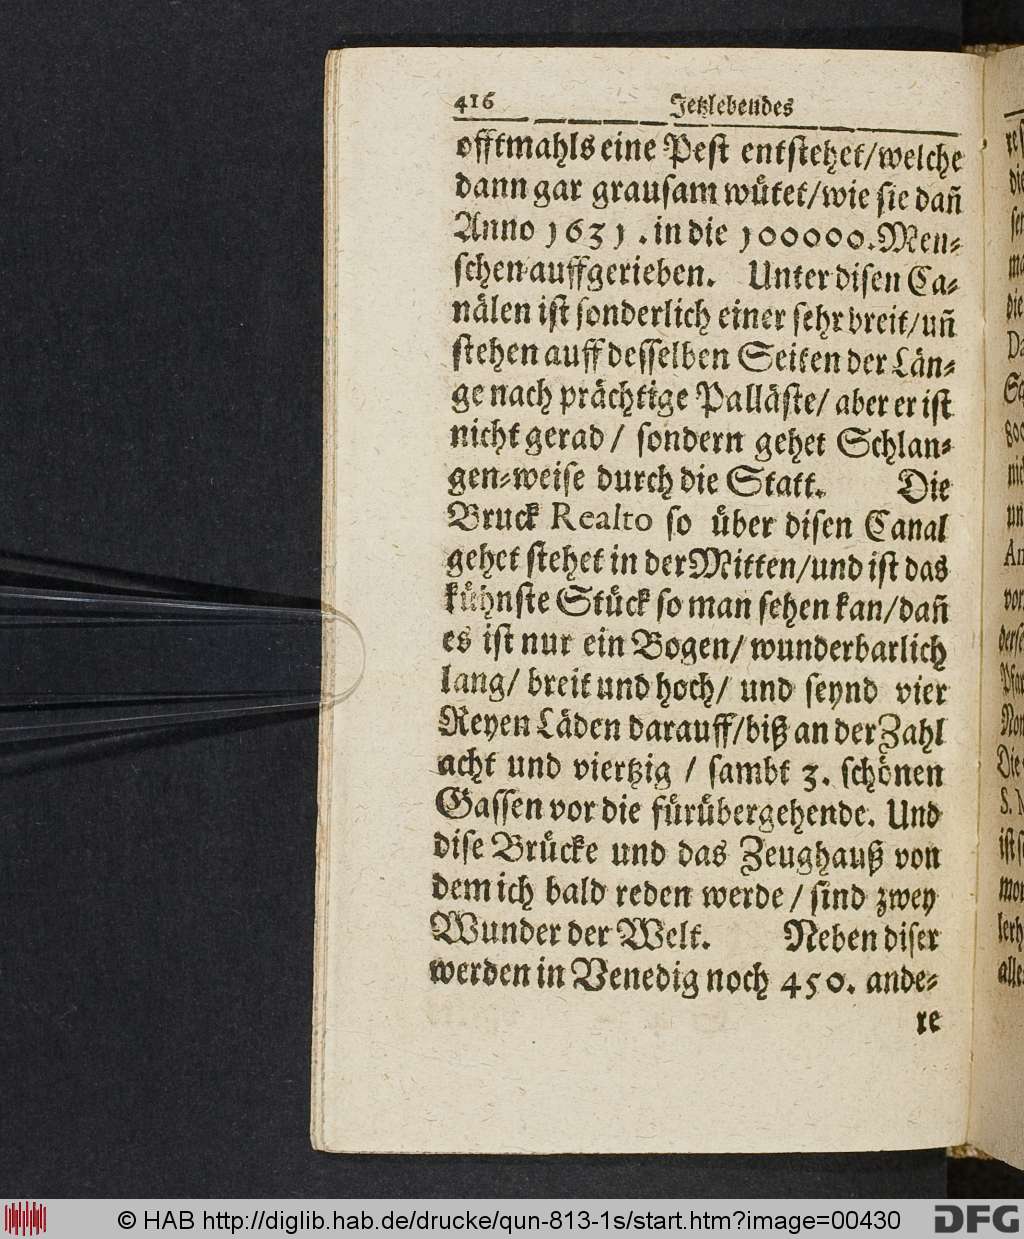 416 Jetzlebendes
offtmahls eine Pest entstehet/welche
dann gar grausam wütet/wie sie dañ
Anno 1631. in die 100000. Men-
schen auffgerieben. Unter disen Ca-
nälen ist sonderlich einer sehr breit/uñ
stehen auff desselben Seiten der Län-
ge nach prächtige Palläste/ aber er ist
nicht gerad / sondern gehet Schlan-
gen-weise durch die Statt. Die
Bruck Realto so über disen Canal
gehet stehet in der Mitten/und ist das
kühnste Stück so man sehen kan/dañ
es ist nur ein Bogen/ wunderbarlich
lang/ breit und hoch/ und seynd vier
Reyen Läden darauff/biß an der Zahl
acht und viertzig / sambt 3. schönen
Gassen vor die fürübergehende. Und
dise Brücke und das Zeughauß von
dem ich bald reden werde / sind zwey
Wunder der Welt. Neben diser
werden in Venedig noch 450. ande-
re
© HAB http://diglib.hab.de/drucke/qun-813-1s/start.htm?image=00430
DFG